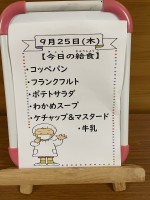 9月25日(木)
【今日の給食】
・コッペパン
・フランクフルト
・ポテトサラダ
・わかめスープ
・ケチャップ&マスタード
・牛乳